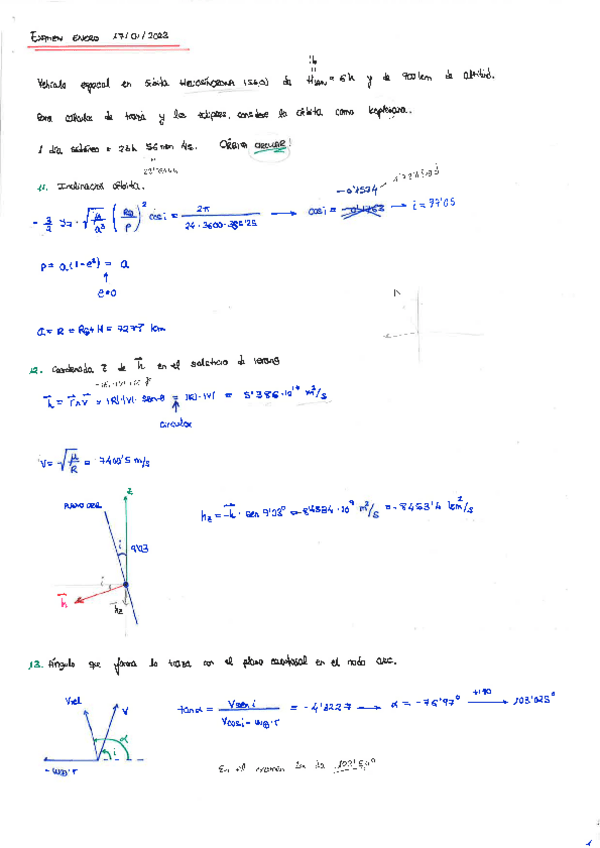 EXAMEN ENERO 17/01/2023
Vehículo espacial en órbita HELIOSÍNCRONA (SSO) de H = 6h y de 900 km de altitud.
Para cálculo de traza y los eclipses, considere la órbita como kepleriana.
1 día sidéreo = 23h 56 min 4s. ÓRBITA CIRCULAR!
11. Inclinación órbita.
- 3/2 J2 · √(μ/a³) (R⊕/p)² cos i = 2π / 24·3600·365'25 → cos i = → i =
-0'1574
p = a(1-e²) = a
e=0
a = R = R⊕ + H = 7278 km
12. Coordenada z de h en el solsticio de verano
h = r∧v = |R|·|V|· senθ = |R|·|V| = 5'386·10¹⁰ m²/s
circular
V = √(μ/R) = 7400'5 m/s
z
PLANO ORB.
i
9'03
i
h
hz
hz = -h · sen 9'03° = = -8453'4 km²/s
13. Ángulo que forma la traza con el plano ecuatorial en el nodo asc.
Vrel
V
α
i
-ω⊕·r
tanα = V sen i / V cos i - ω⊕·r = -4'3227 → α = -76'97° +180 → 103'025°
En el examen